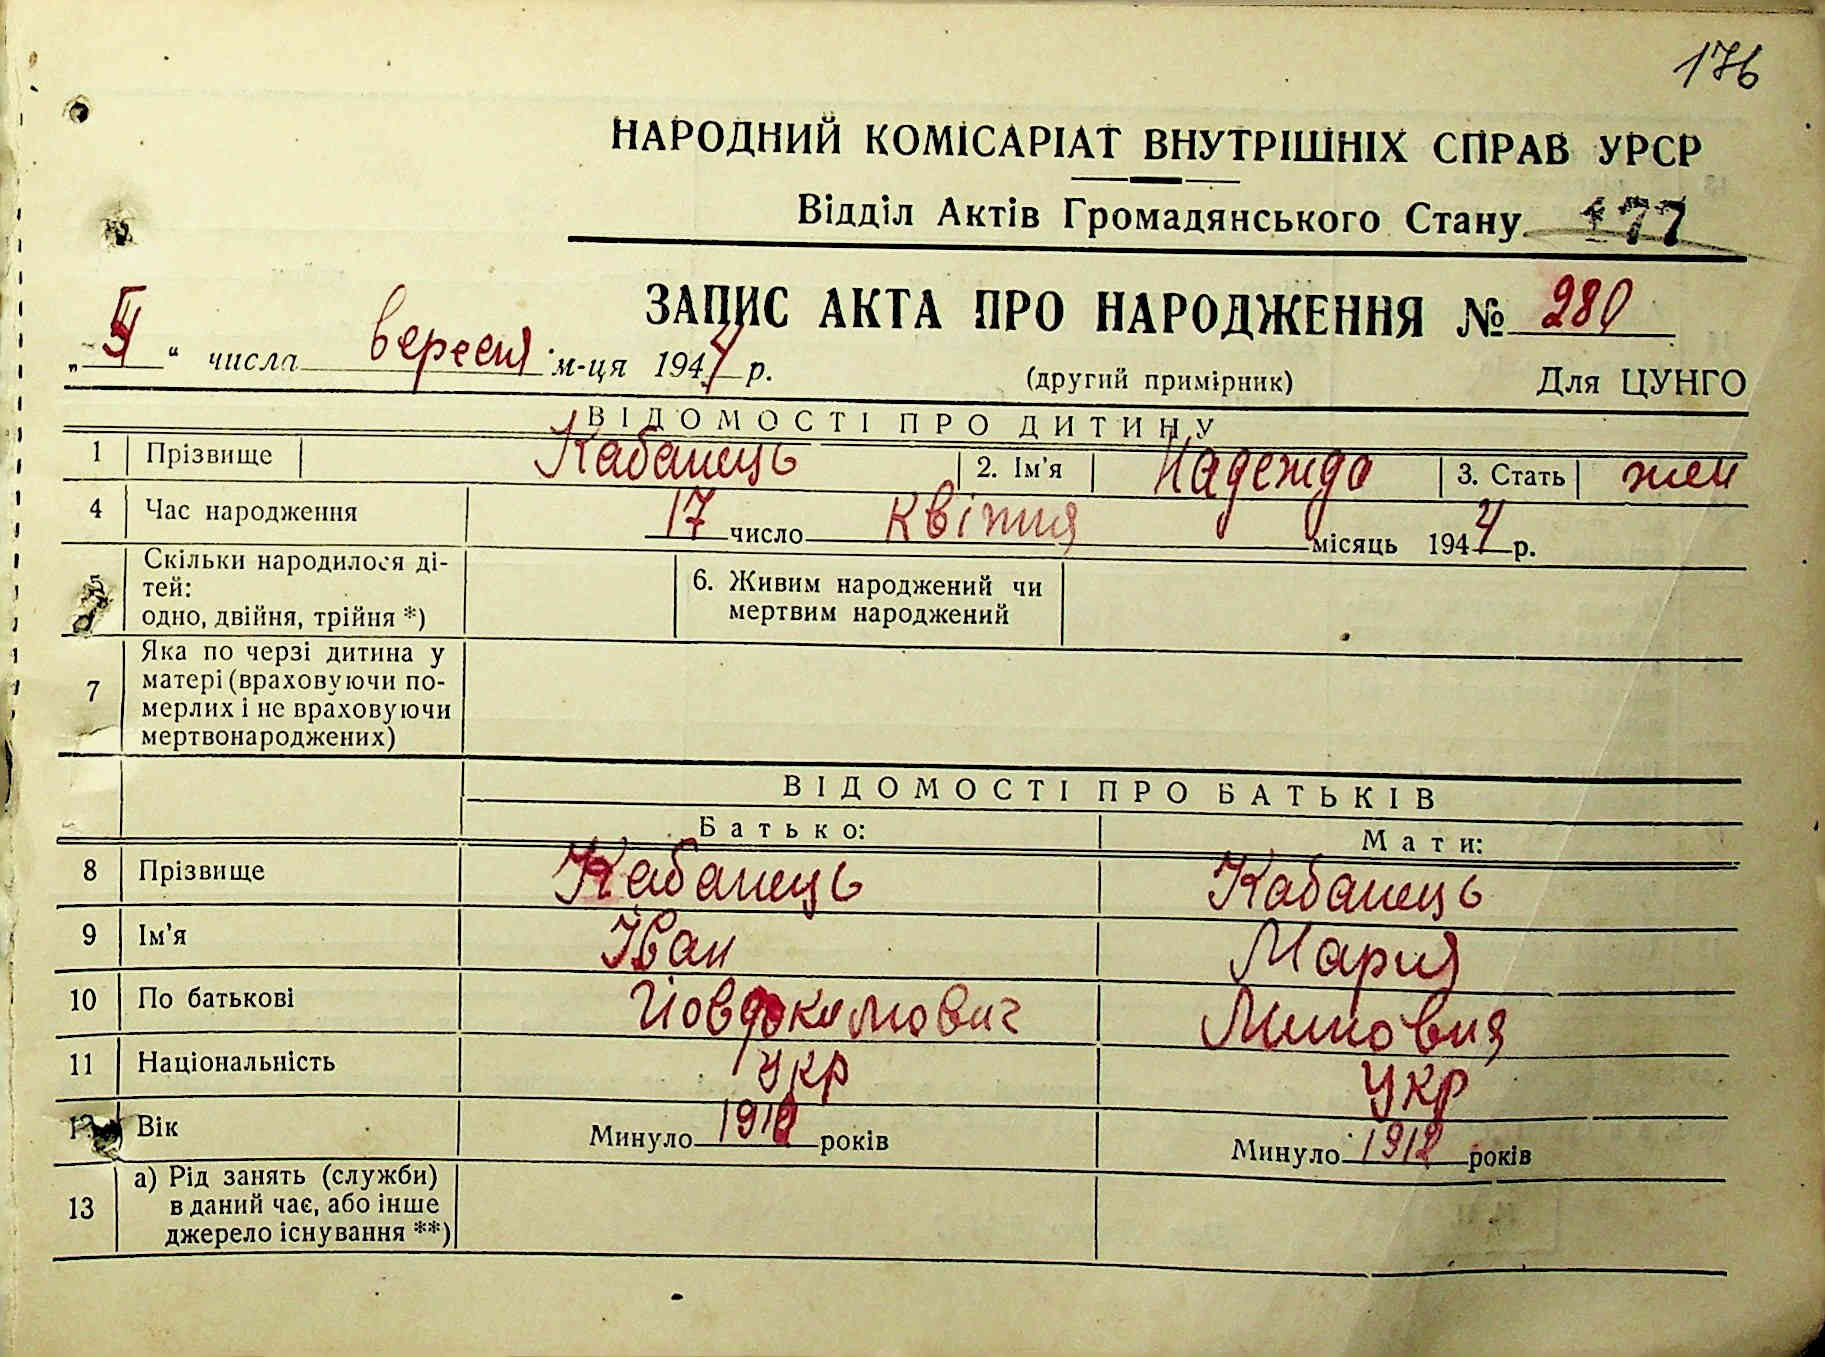 176
НАРОДНИЙ КОМІСАРІАТ ВНУТРІШНІХ СПРАВ УРСР
Відділ Актів Громадянського Стану 177
ЗАПИС АКТА ПРО НАРОДЖЕННЯ № 280
„ “ числа вересня м-ця 1944 р. (другий примірник) Для ЦУНГО
ВІДОМОСТІ ПРО ДИТИНУ
1 Прізвище Кабанець 2. Ім'я Надежда 3. Стать жен
4 Час народження 17 число квітня місяць 1944 р.
5 Скільки народилося ді-
тей:
одно, двійня, трійня *)
6. Живим народжений чи
мертвим народжений
7 Яка по черзі дитина у
матері (враховуючи по-
мерлих і не враховуючи
мертвонароджених)
ВІДОМОСТІ ПРО БАТЬКІВ
Батько: Мати:
8 Прізвище Кабанець Кабанець
9 Ім'я Іван Мария
10 По батькові Йовдокимович
11 Національність укр укр
12 Вік Минуло 1910 років Минуло 1912 років
13 а) Рід занять (служби)
в даний час, або інше
джерело існування **)